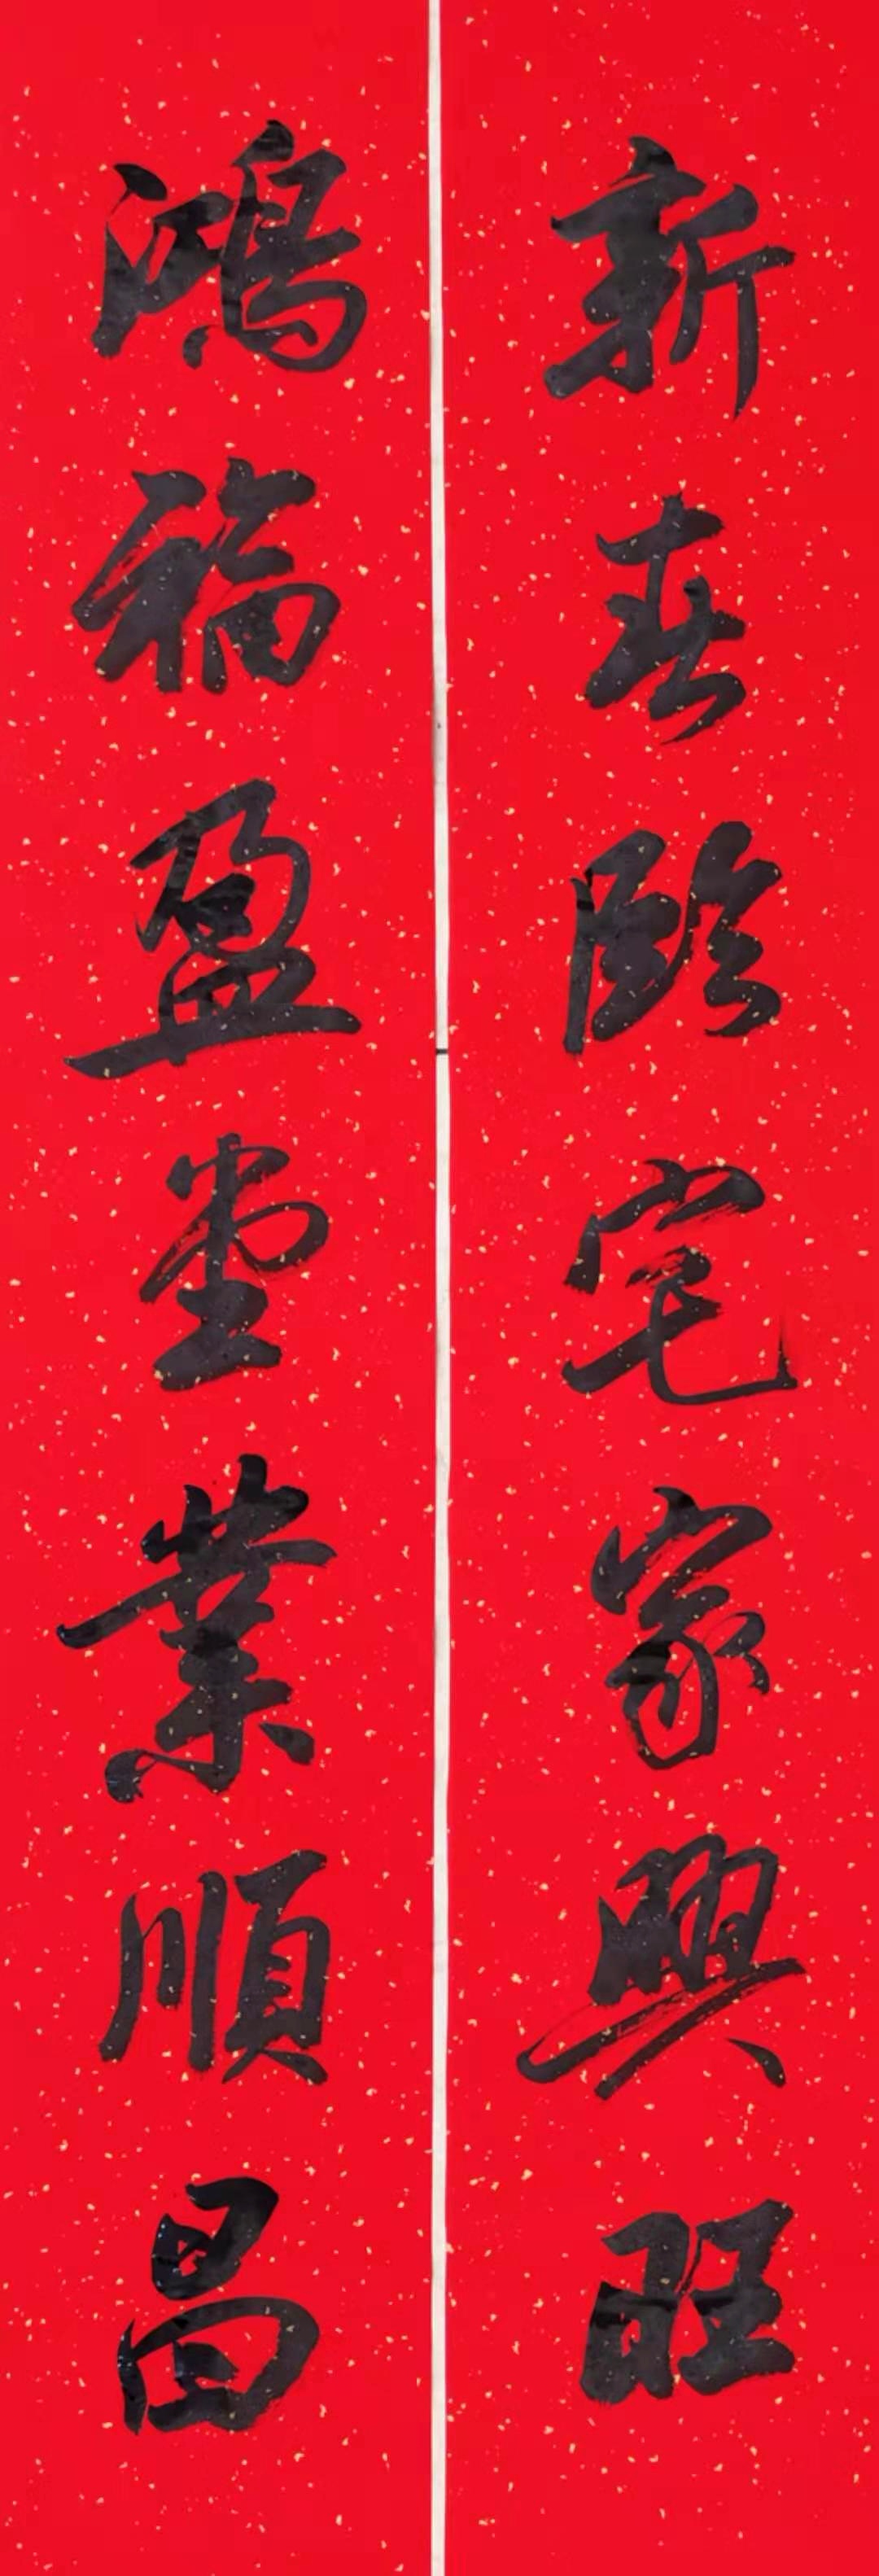 新春臨宅家興旺
鴻福盈堂業順昌